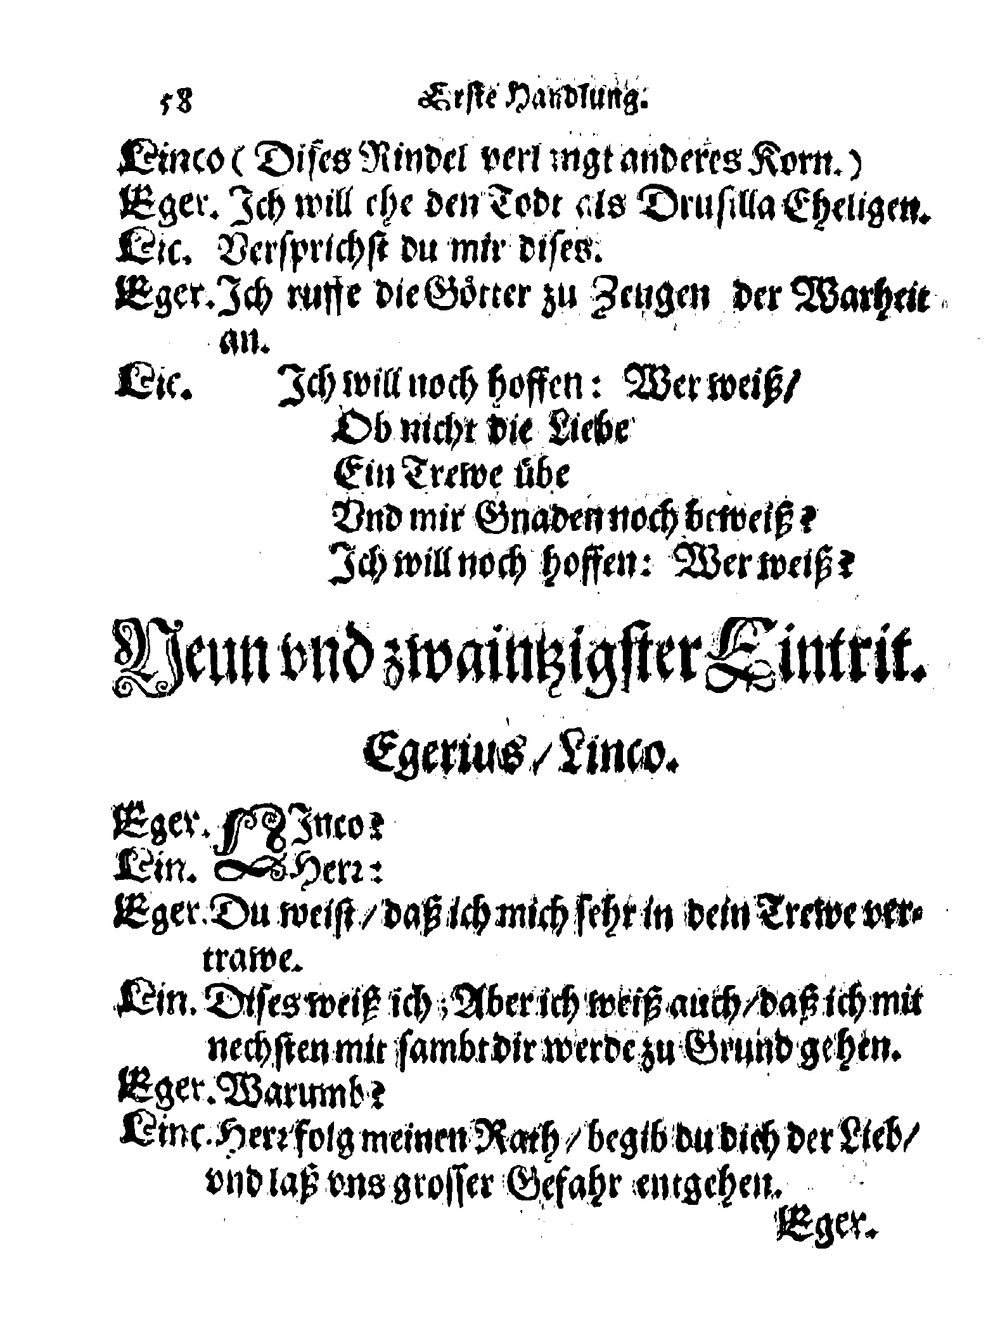 58 Erste Handlung.
Linco ( Dises Rindel verlangt anderes Korn.)
Eger. Ich will ehe den Todt als Drusilla Eheligen.
Lic. Versprichst du mir dises.
Eger. Ich ruffe die Götter zu Zeugen der Warheit
an.
Lic. Ich will noch hoffen: Wer weiß/
Ob nicht die Liebe
Ein Trewe übe
Vnd mir Gnaden noch beweiß?
Ich will noch hoffen: Wer weiß?
Neun vnd zwaintzigster Eintrit.
Egerius / Linco.
Eger. LInco?
Lin. Herr:
Eger. Du weist / daß ich mich sehr in dein Trewe ver-
trawe.
Lin. Dises weiß ich; Aber ich weiß auch / daß ich mit
nechsten mit sambt dir werde zu Grund gehen.
Eger. Warumb?
Linc. Herr folg meinen Rath / begib du dich der Lieb/
vnd laß vns grosser Gefahr entgehen.
Eger.